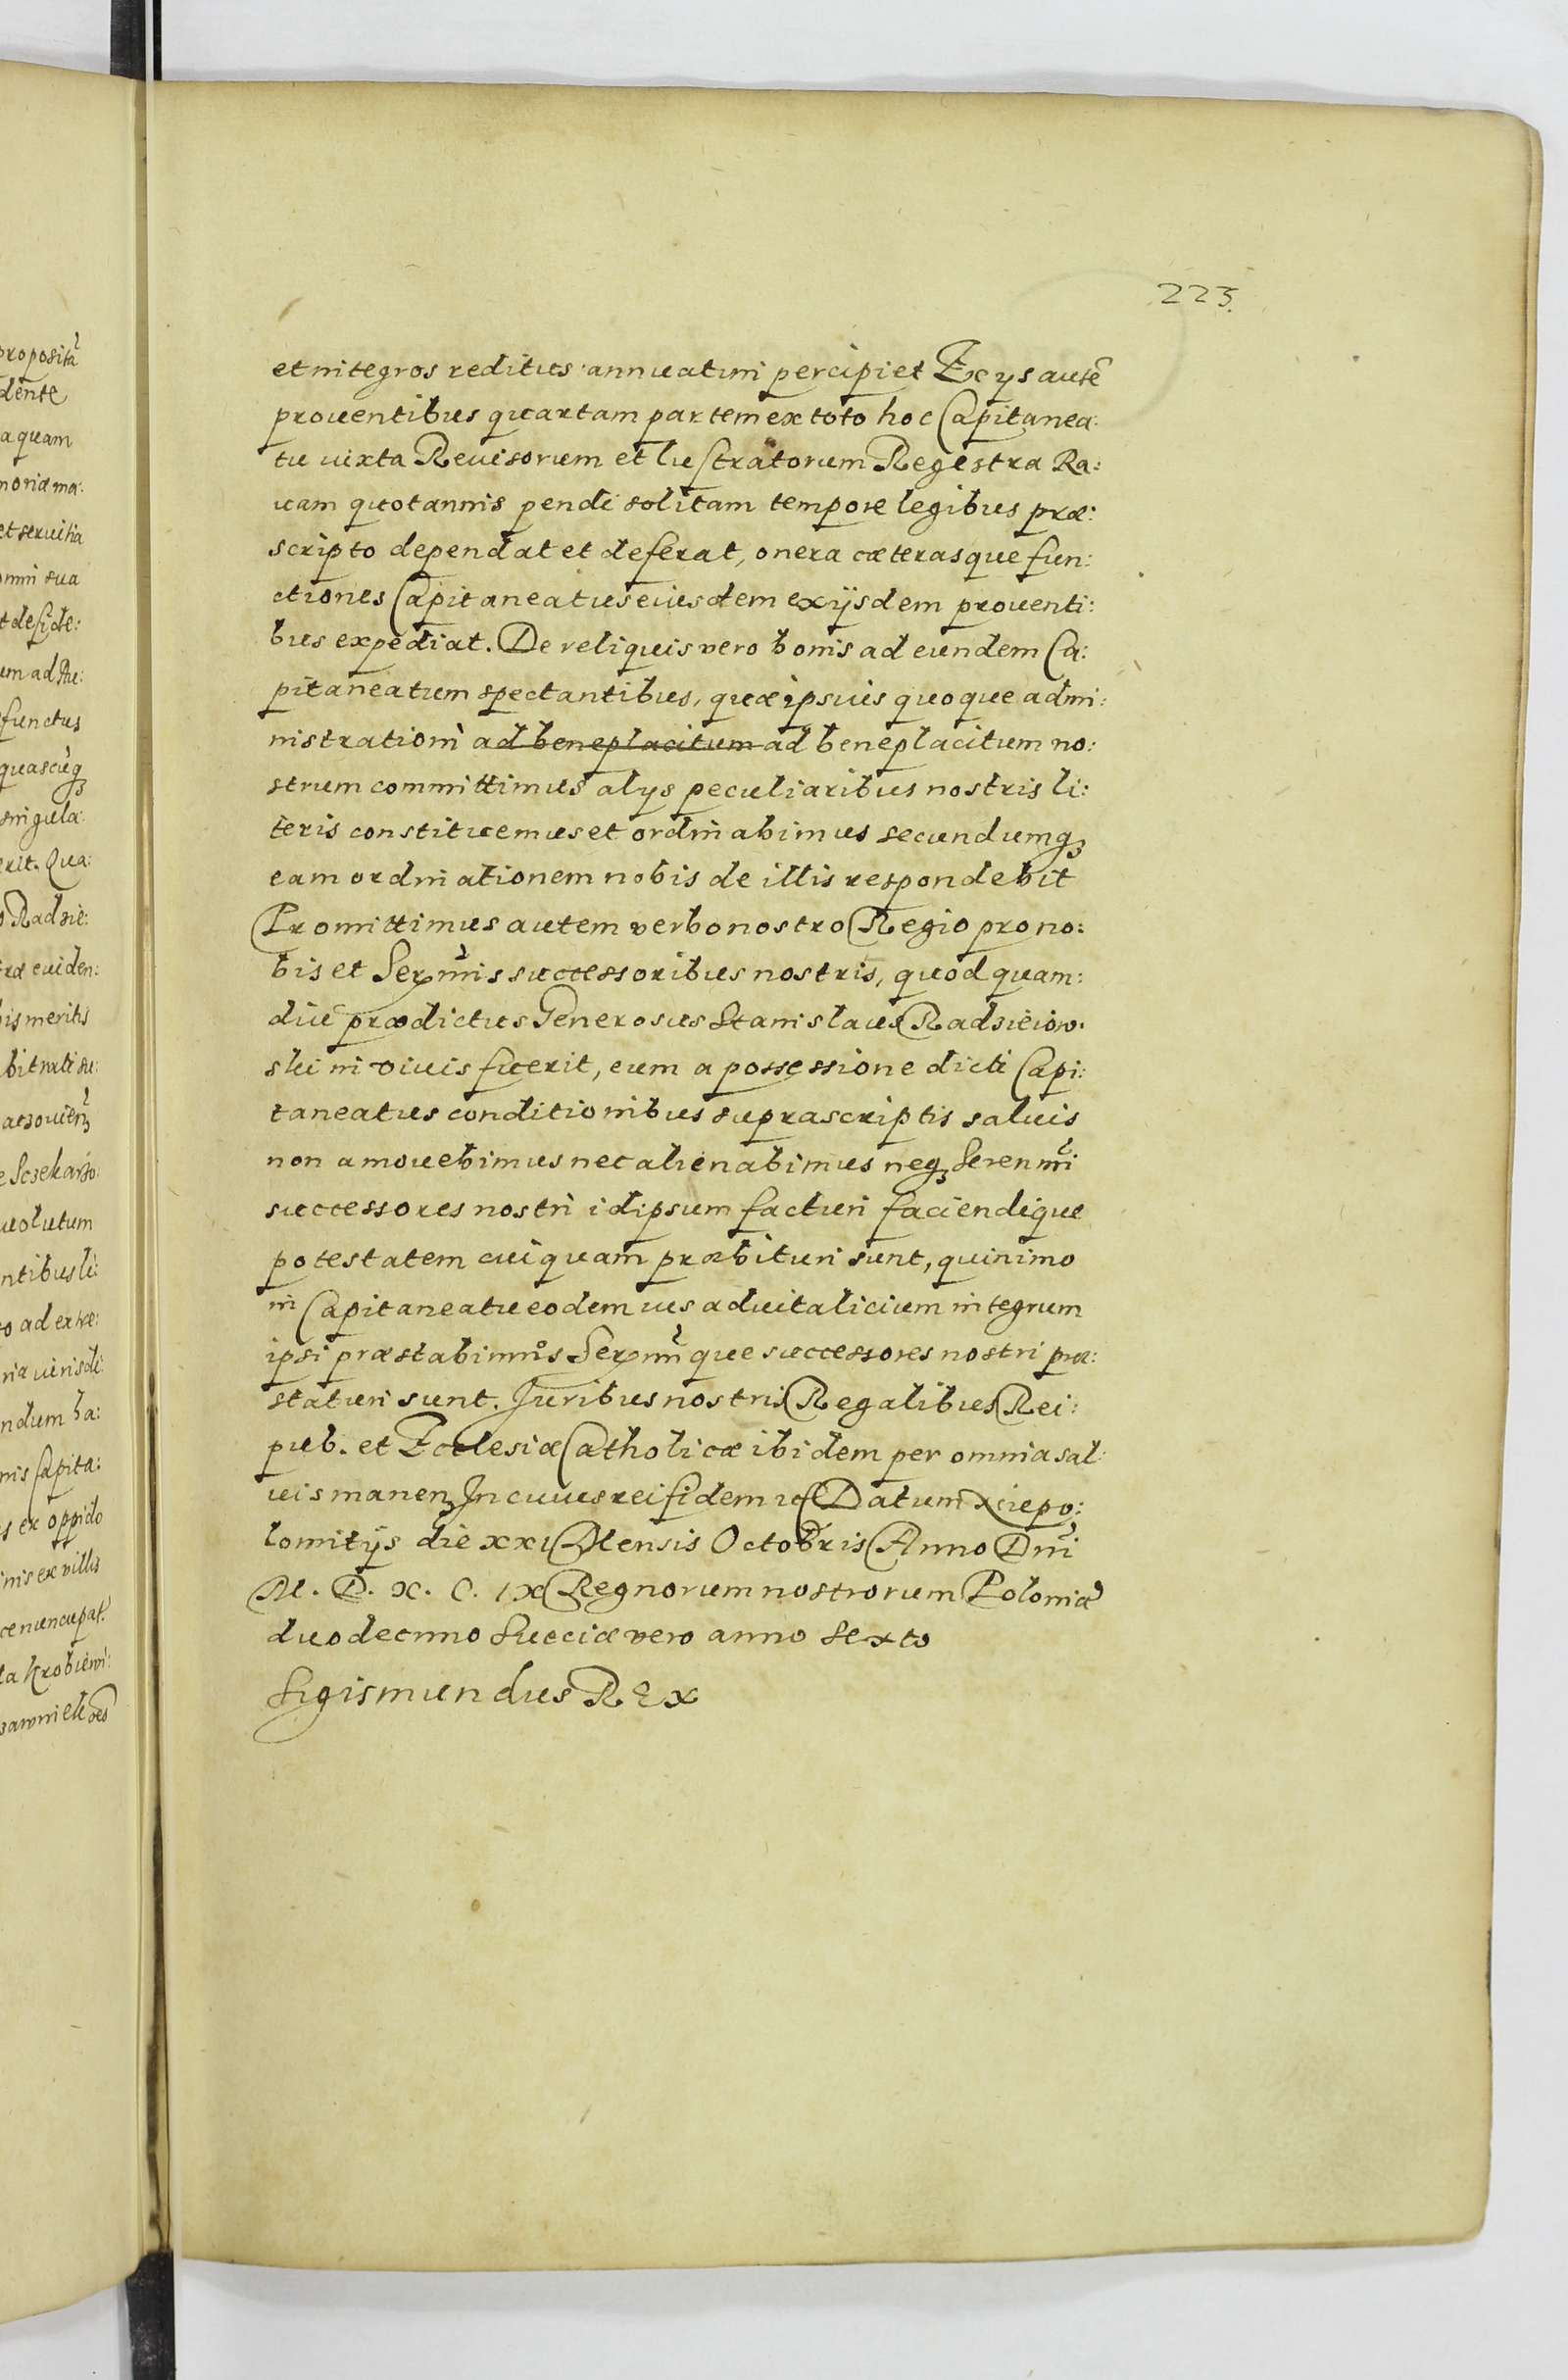 223.
propositã
dente
aquam
moriæ ma:
et seruitia
omni sua
t deside:
um ad Au:
functus
quascũqʒ
singula:
erit. Qua:
o Radzie:
træ euiden:
bis meritis
bit nati su:
atzouienʒ
uolutum
ntibus li:
o ad extre:
ndum ha:
nis Capita:
s ex oppido
inis ex villis
ce nuncupat.
la Krobiewi:
et integros reditus annuatim percipiet Ex ys autẽ
prouentibus quartam partem ex toto hoc Capitanea:
tu iuxta Reuisorum et lustratorum Regestra Ra:
uam quotannis pendi solitam tempore legibus præ:
scripto dependat et deferat, onera cæterasque fun:
ctiones Capitaneatus eiusdem ex ijsdem prouenti:
bus expediat. De reliquis vero bonis ad eundem Ca:
pitaneatum spectantibus, quæ ipsius quoque admi:
nistrationi ad beneplacitum ad beneplacitum no:
strum committimus alys peculiaribus nostris li:
teris constituemus et ordinabimus secundumqʒ
eam ordinationem nobis de illis respondebit
Promittimus autem verbo nostro Regio pro no:
bis et Serm̃is successoribus nostris, quod quam:
diu prædictus Generosus Stanislaus Radzieiow:
ski in viuis fuerit, eum a possessione dicti Capi:
taneatus conditionibus suprascriptis saluis
non amouebimus nec alienabimus neqʒ Serenm̃i
successores nostri id ipsum facturi faciendique
potestatem cuiquam præbituri sunt, quinimo
in Capitaneatu eodem ius aduitalicium integrum
ipsi præstabimus Serm̃ique successores nostri præ:
staturi sunt. Juribus nostris Regalibus Rei:
pub. et Ecclesiæ Catholicæ ibidem per omnia sal:
uis manenʒ In cuius rei fidem Datum Xiepo:
lomitijs die XXI Mensis Octobris Anno Dñi
M. D. X. C. IX Regnorum nostrorum Poloniæ
duodecimo Sueciæ vero anno sexto
Sigismundus Rex